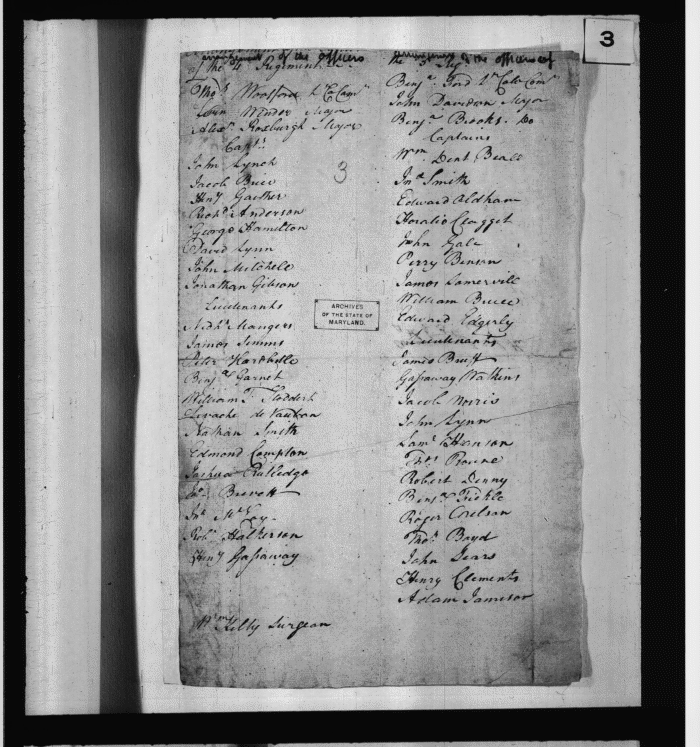 3
arrangement of the officers
of the 4 Regiment
Tho.s Woolford Lt Col Comt
Levin Winder Major
Alexr Roxburgh Major
Capts
John Lynch
Jacob Brice
Heny Gaither
Richd Anderson
George Hamilton
David Lynn
John Mitchell
Jonathan Gibson
Lieutenants
Nichs Mangers
James Simms
Peter Hardcastle
Benja Garnet
William T. Stoddert
Levacher de Vaubrun
Nathan Smith
Edmond Compton
Joshua Rutledge
Jno Brevett
Jno McCoy
Robt Halkerson
Heny Gassaway
Wm Kilty Surgeon
3
ARCHIVES
OF THE STATE OF
MARYLAND.
arrangement of the officers of
the 5 Reg
Benja Ford Lt Colo Comt
John Davidson Major
Benja Brooks Do
Captains
Wm Dent Beall
Jno Smith
Edward Oldham
Horatio Clagget
John Gale
Perry Benson
James Somervill
William Bruce
Edward Edgerly
Lieutenants
James Bruff
Gassaway Watkins
Jacob Norris
John Lynn
Saml Hanson
Thos Rouse
Robert Denny
Benja Fickle
Roger Coulson
Thos Boyd
John Sears
Henry Clements
Adam Jamison